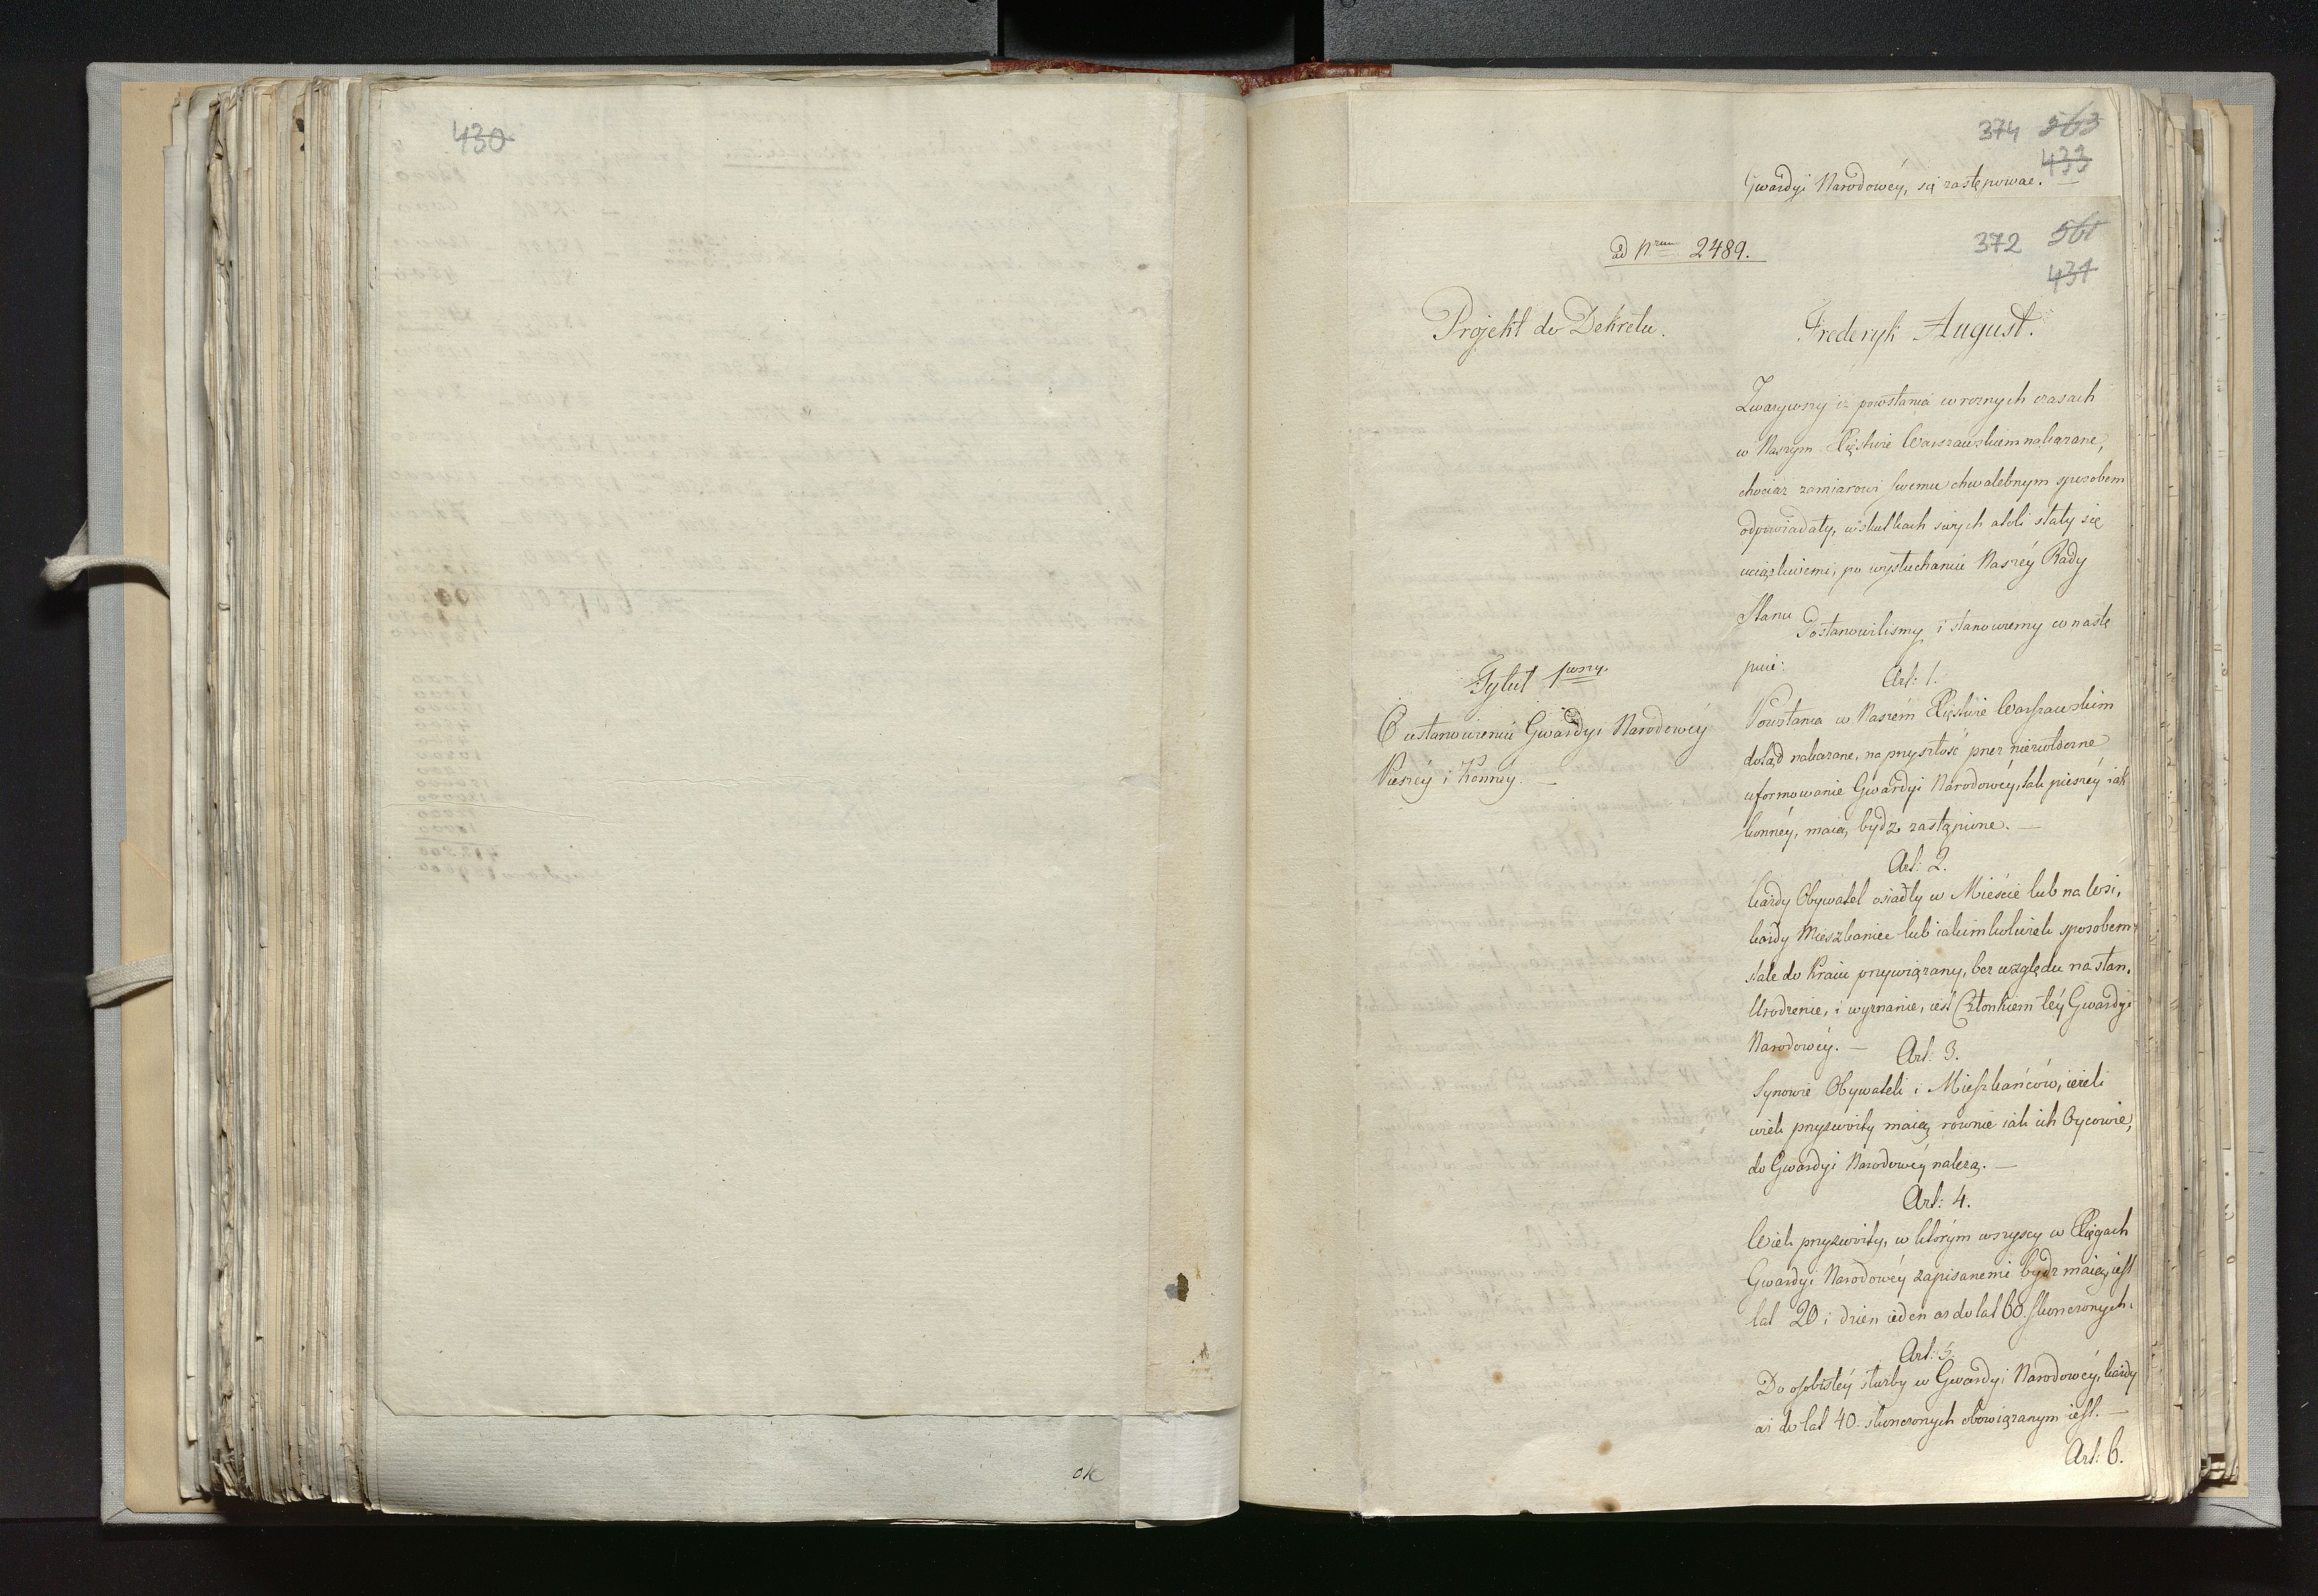 430
374 563
433
Gwardyi Narodowéy, się zastępować. —
ad Nrum 2489.
372 561
431
Projekt do Dekretu.
Frederyk August.
Zważywszy iż powstania w roznych czasach
w Naszym Xięstwie Warszawskiem nakazane,
chociaz zamiarowi swemu chwalebnym sposobem
odpowiadały, w skutkach swych atoli stały się
uciążliwemi; po wysłuchaniu Naszéy Rady
Stanu
Postanowilismy i stanowiemy co nastę
puie:
Tytuł 1wszy.
O ustanowieniu Gwardyi Narodowéy
Pieszéy i Konnéy. —
Art: 1.
Powstania w Naszém Xięstwie Warszawskim
dotąd nakazane, na przyszłość przez niezwłoczne
uformowanie Gwardyi Narodowéy, tak pieszéy iak
konnéy, maią bydz zastąpione. —
Art: 2.
każdy Obywatel osiadły w Mieście lub na Wsi,
każdy Mieszkaniec lub iakimkolwiek sposobem
stale do Kraiu przywiązany, bez względu na stan,
Urodzenie, i wyznanie, iest Członkiem téy Gwardyi
Narodowéy. —
Art: 3.
Synowie Obywateli i Mieszkańców, ieżeli
wiek przyzwoity maią, rownie iak ich Oycowie,
do Gwardyi Narodowéy należą. —
Art: 4.
Wiek przyzwoity, w którym wszyscy w Xięgach
Gwardyi Narodowéy zapisanemi bydz maią, iest
lat 20 i dzien ieden az do lat 60. skonczonych.
Art: 5.
Do osobistéy służby w Gwardyi Narodowéy, każdy
aż do lat 40. skonczonych obowiązanym iest. —
Art: 6.